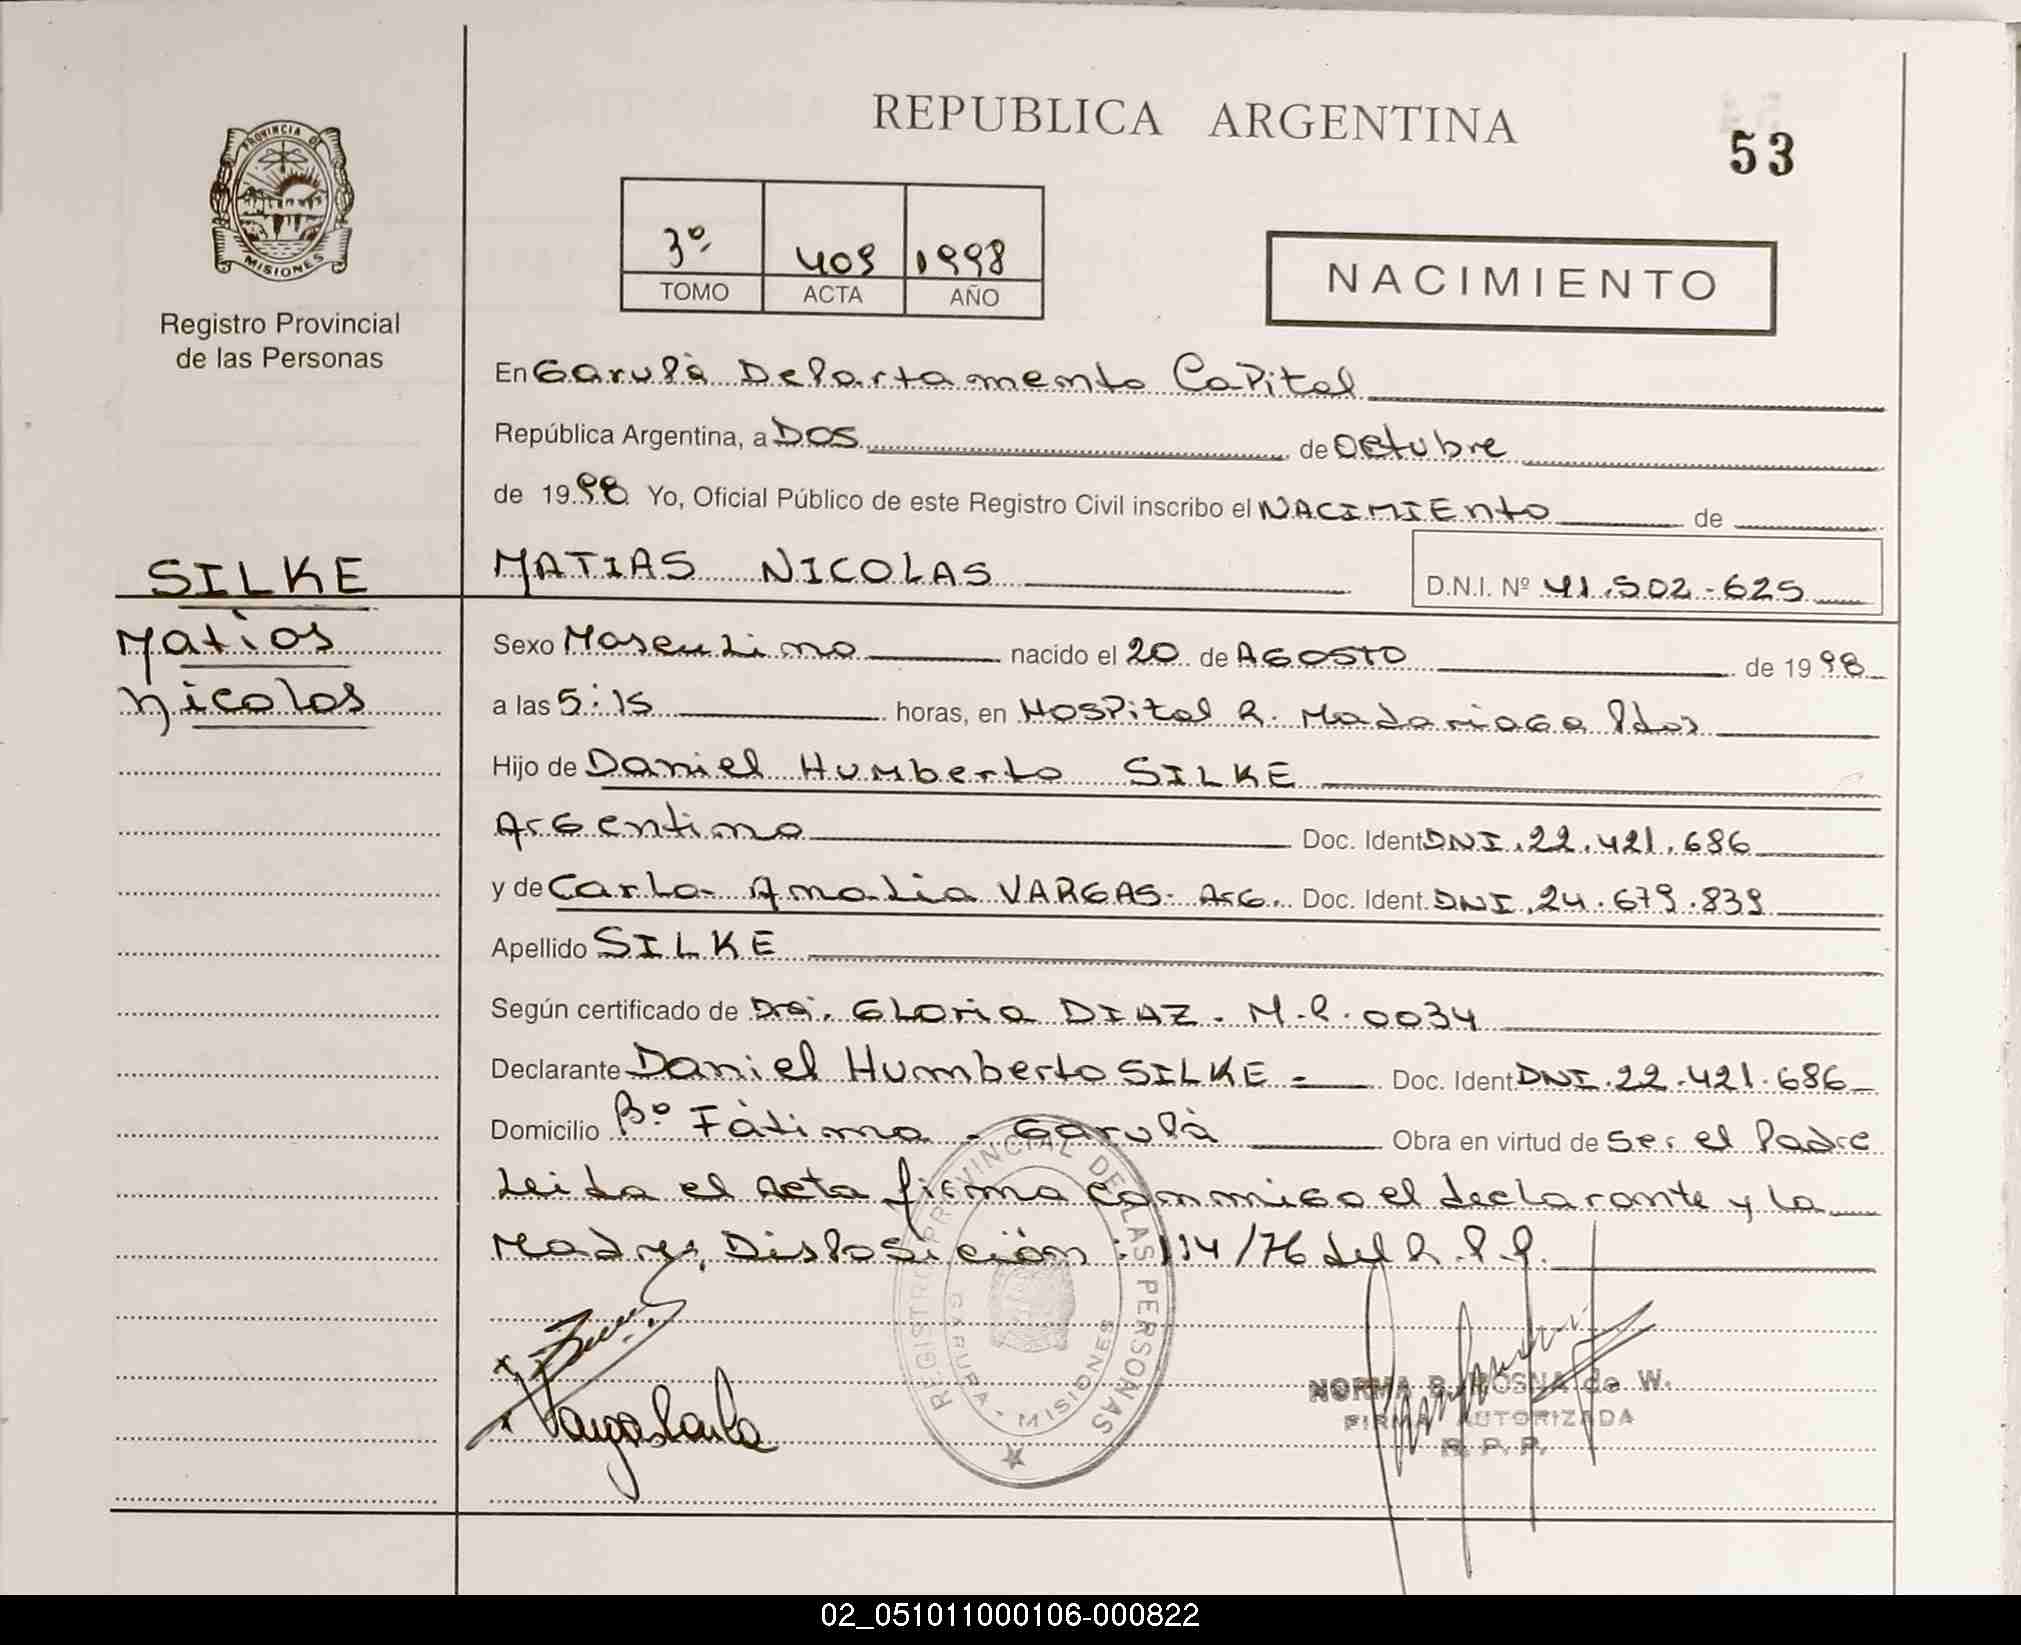 REPUBLICA ARGENTINA
53
PROVINCIA DE
MISIONES
Registro Provincial
de las Personas
3º 409 1998
TOMO ACTA AÑO
NACIMIENTO
En Garupà Departamento Capital
República Argentina, a DOS de Octubre
de 1998 Yo, Oficial Público de este Registro Civil inscribo el NACIMIEnto de
SILKE
Matias
Nicolas
MATIAS NICOLAS D.N.I. Nº 41.502-625
Sexo Masculino nacido el 20 de AGOSTO de 1998
a las 5:15 horas, en Hospital R. Madariaga Pdas
Hijo de Daniel Humberto SILKE
Argentino Doc. Ident DNI.22.421.686
y de Carla Amalia VARGAS- Arg. Doc. Ident. DNI.24.679.839
Apellido SILKE
Según certificado de Dra. Gloria DIAZ. M.P. 0034
Declarante Daniel Humberto SILKE - Doc. Ident DNI.22.421.686
Domicilio Bº Fàtima - Garupà Obra en virtud de Ser el Padre
Leida el acta firma conmigo el declarante y la
Madre, Disposición: 114/76 del R.P.P.
REGISTRO PROVINCIAL DE LAS PERSONAS
GARUPA - MISIONES
Vargas Carla
NORMA B. ROSNA de W.
FIRMA AUTORIZADA
R. P. P.
02_051011000106-000822